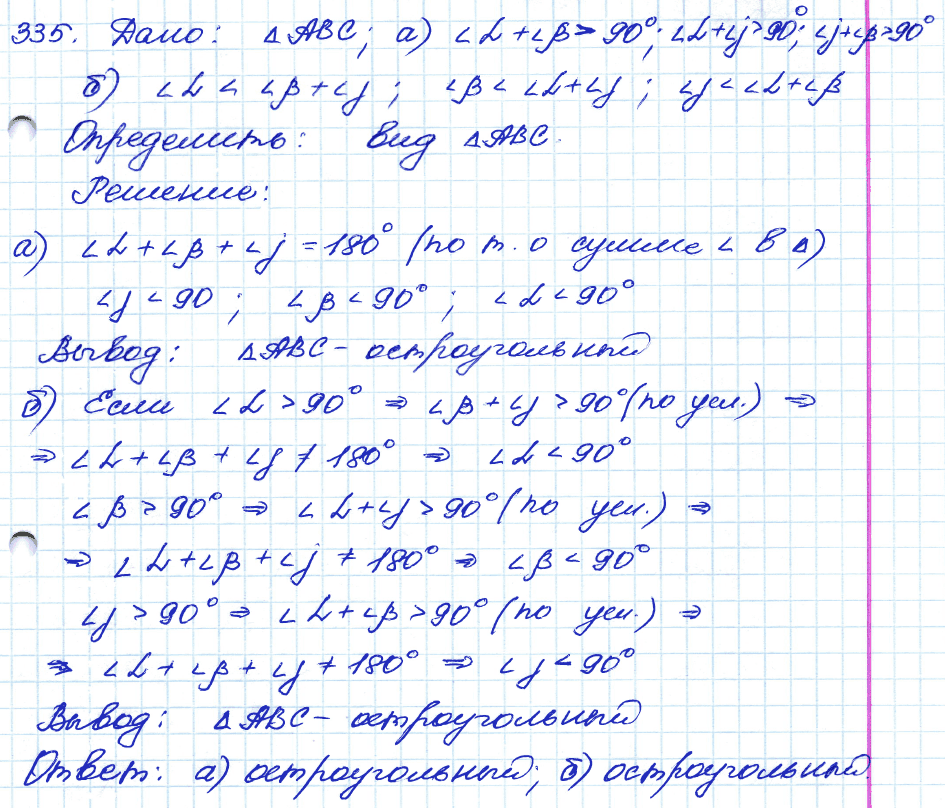 335. Дано: △ABC; а) ∠α+∠β>90°; ∠α+∠j>90°; ∠j+∠β>90°
б) ∠α < ∠β+∠j; ∠β < ∠α+∠j; ∠j < ∠α+∠β
Определить: вид △ABC.
Решение:
а) ∠α+∠β+∠j = 180° (по т. о сумме ∠ в △)
∠j < 90; ∠β < 90°; ∠α < 90°
Вывод: △ABC – остроугольный
б) Если ∠α > 90° ⇒ ∠β+∠j > 90° (по усл.) ⇒
⇒ ∠α+∠β+∠j ≠ 180° ⇒ ∠α < 90°
∠β > 90° ⇒ ∠α+∠j > 90° (по усл.) ⇒
⇒ ∠α+∠β+∠j ≠ 180° ⇒ ∠β < 90°
∠j > 90° ⇒ ∠α+∠β > 90° (по усл.) ⇒
⇒ ∠α+∠β+∠j ≠ 180° ⇒ ∠j < 90°
Вывод: △ABC – остроугольный
Ответ: а) остроугольный; б) остроугольный.